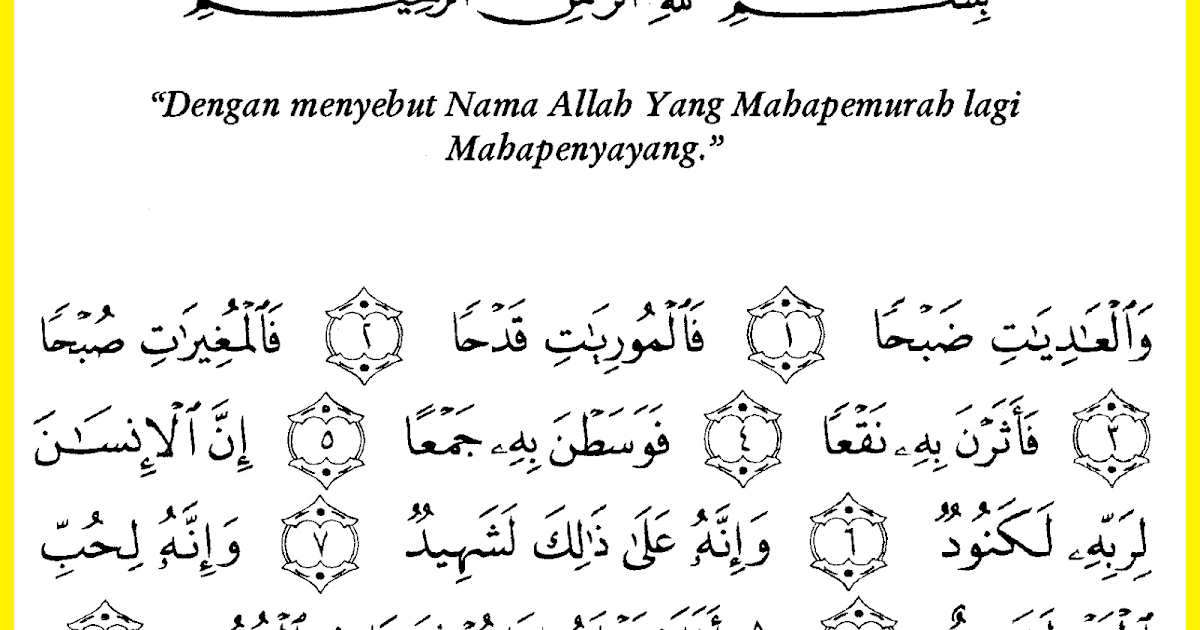 بِسْمِ اللَّهِ الرَّحْمَٰنِ الرَّحِيمِ
“Dengan menyebut Nama Allah Yang Mahapemurah lagi
Mahapenyayang.”
وَٱلْعَـٰدِيَـٰتِ ضَبْحًا ١ فَٱلْمُورِيَـٰتِ قَدْحًا ٢ فَٱلْمُغِيرَٰتِ صُبْحًا
٣ فَأَثَرْنَ بِهِۦ نَقْعًا ٤ فَوَسَطْنَ بِهِۦ جَمْعًا ٥ إِنَّ ٱلْإِنسَـٰنَ
لِرَبِّهِۦ لَكَنُودٌ ٦ وَإِنَّهُۥ عَلَىٰ ذَٰلِكَ لَشَهِيدٌ ٧ وَإِنَّهُۥ لِحُبِّ